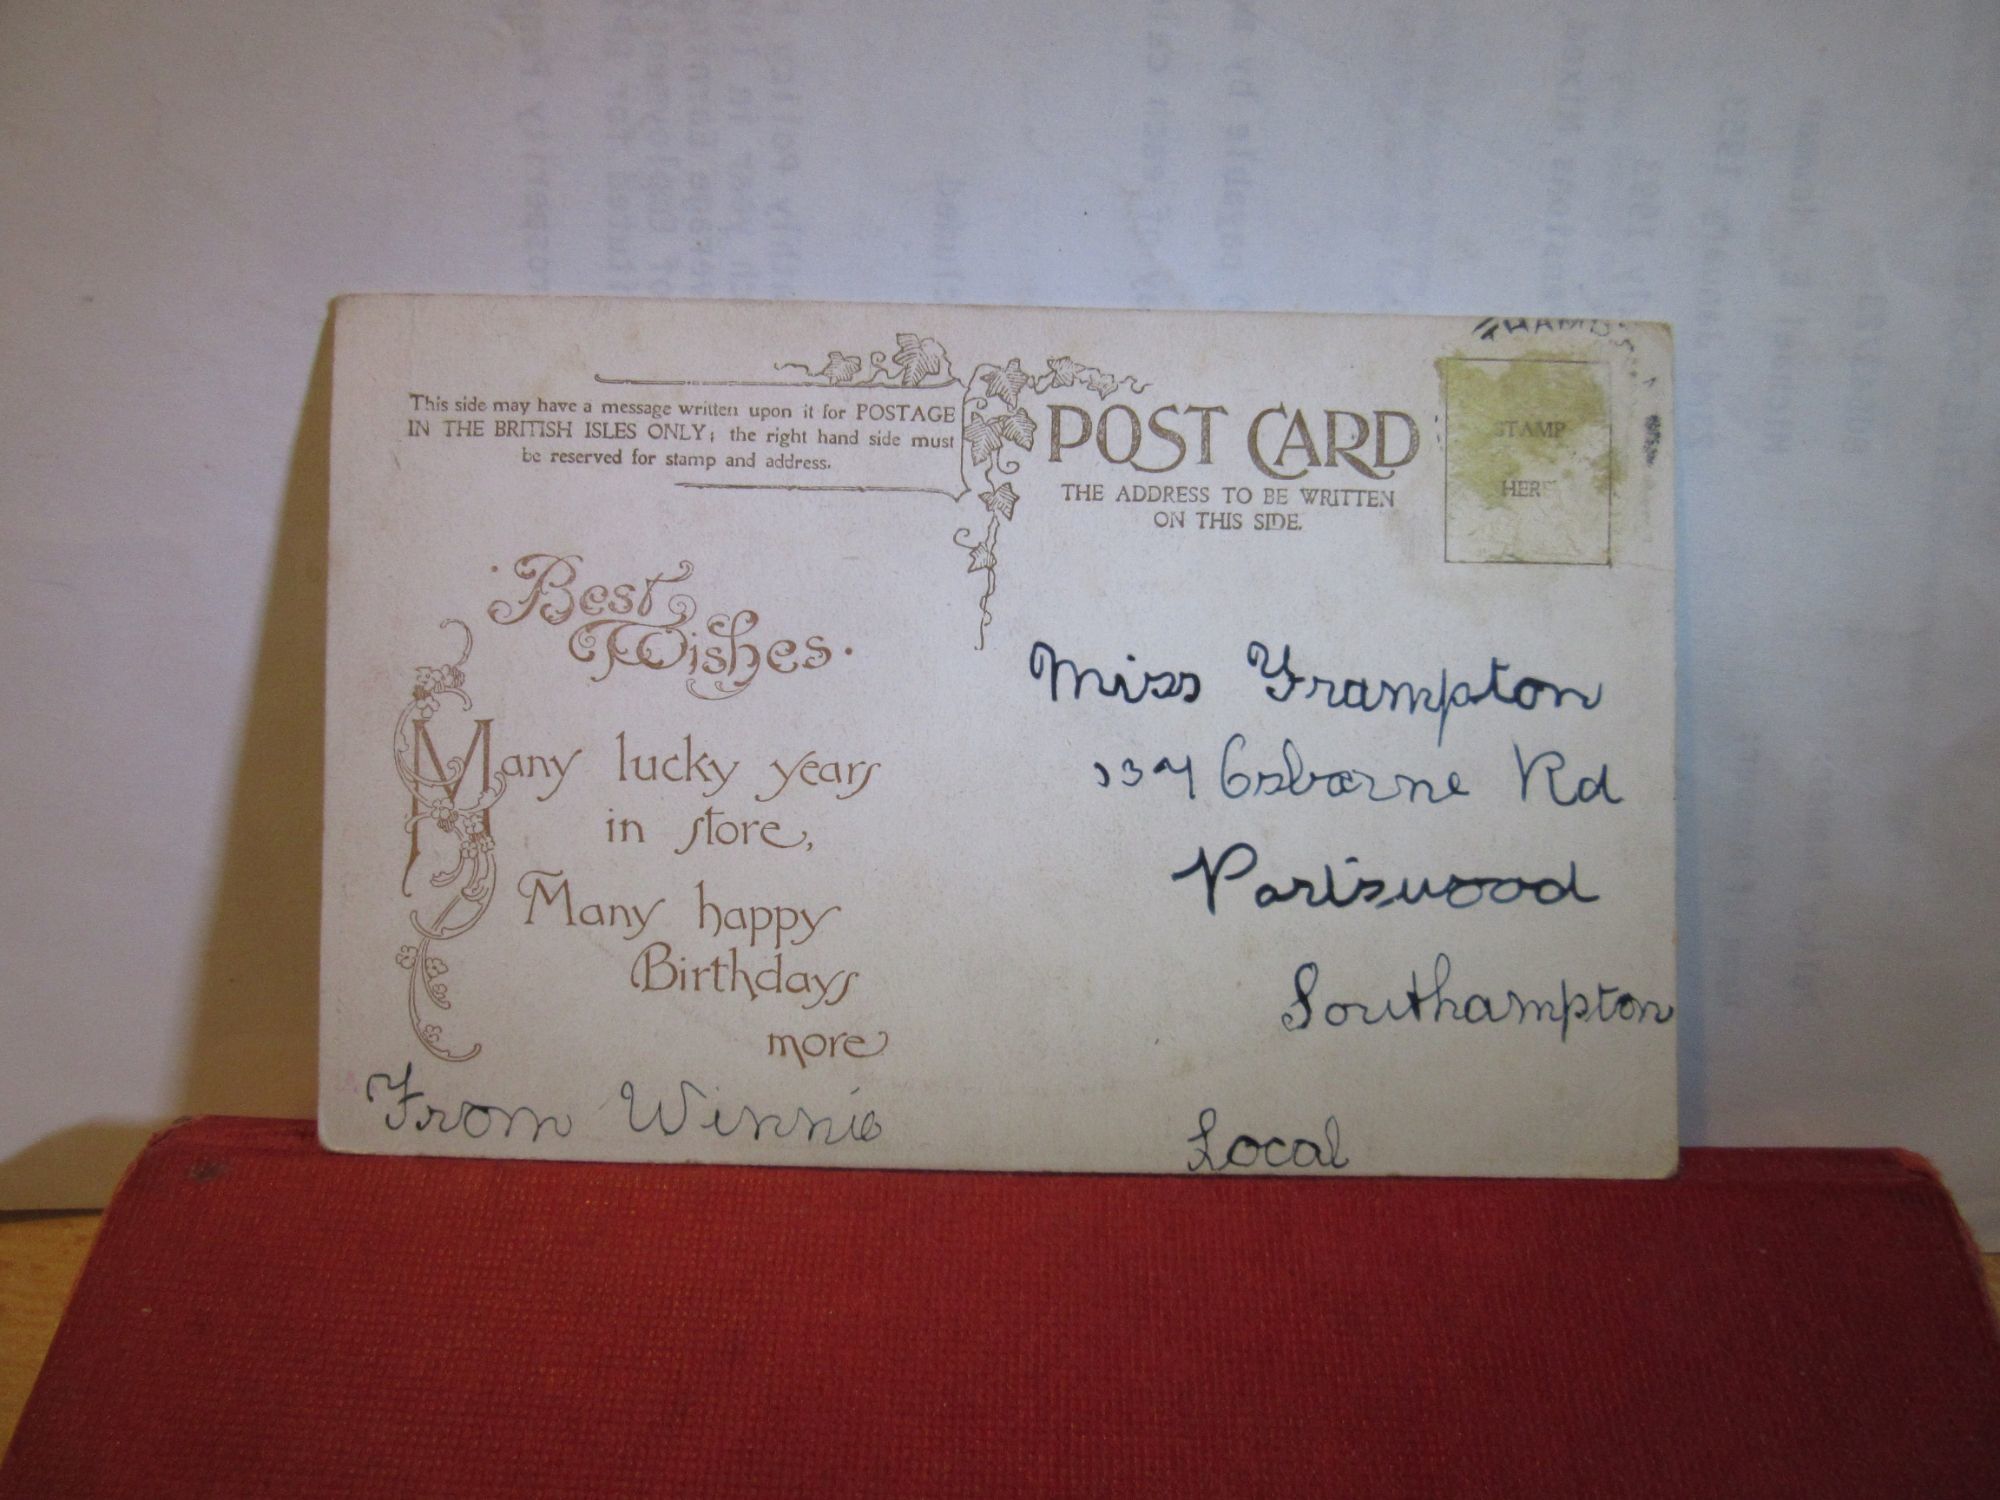 This side may have a message written upon it for POSTAGE
IN THE BRITISH ISLES ONLY; the right hand side must
be reserved for stamp and address.
POST CARD
THE ADDRESS TO BE WRITTEN
ON THIS SIDE.
STAMP
HERE
Best
Wishes.
Many lucky years
in store,
Many happy
Birthdays
more
From Winnie
Miss Frampton
137 Osborne Rd
Portswood
Southampton
Local